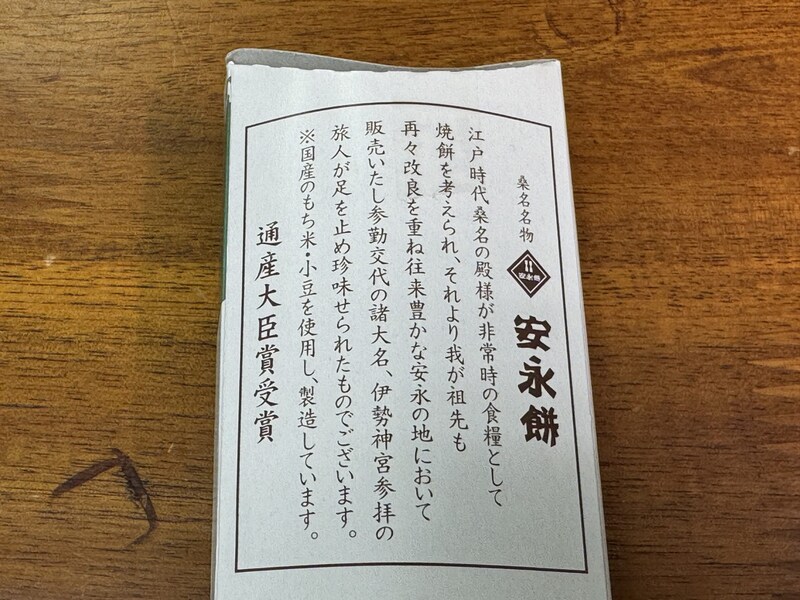 桑名名物
安永餅
安永餅
江戸時代桑名の殿様が非常時の食糧として
焼餅を考えられ、それより我が祖先も
再々改良を重ね往来豊かな安永の地において
販売いたし参勤交代の諸大名、伊勢神宮参拝の
旅人が足を止め珍味せられたものでございます。
※国産のもち米・小豆を使用し、製造しています。
通産大臣賞受賞